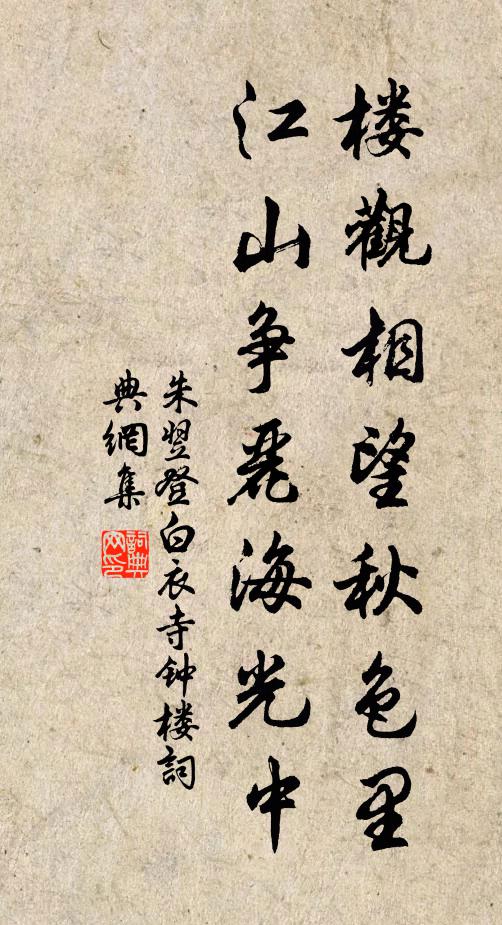 楼觀相望秋色里
江山争麗海光中
朱翌登白衣寺钟楼詞
典網集
詞典网印